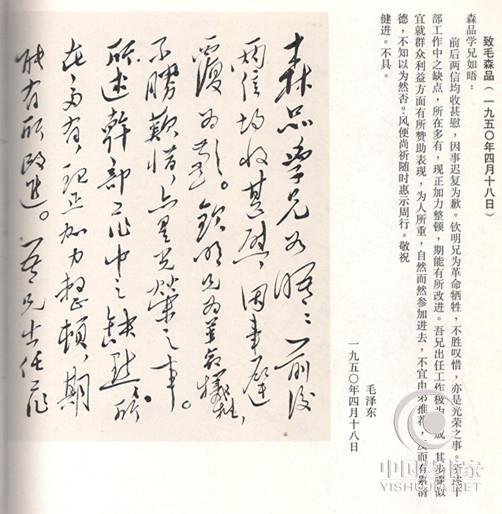 致毛森品(一九五〇年四月十八日)
森品学兄如晤:
前后两信均收甚慰,因事迟复为歉。钦明兄为革命牺牲,不胜叹惜,亦是光荣之事。所述干
部工作中之缺点,所在多有,现正加力整顿,期能有所改进。吾兄出任工作极为成,其步骤似
宜就群众利益方面有所赞助表现,为人所重,自然而然参加进去,不宜由弟推荐,反而有累清
德,不知以为然否。风便尚祈随时惠示周行。敬祝
健进。不具。
毛泽东
一九五〇年四月十八日
森品學兄如晤:前後
兩信均收甚慰,因事遲
覆為歉。欽明兄為革命犧牲,
不勝歎惜,亦是光榮之事。
所述幹部工作中之缺點,所
在多有,現正加力整頓,期
能有所改進。吾兄出任工作